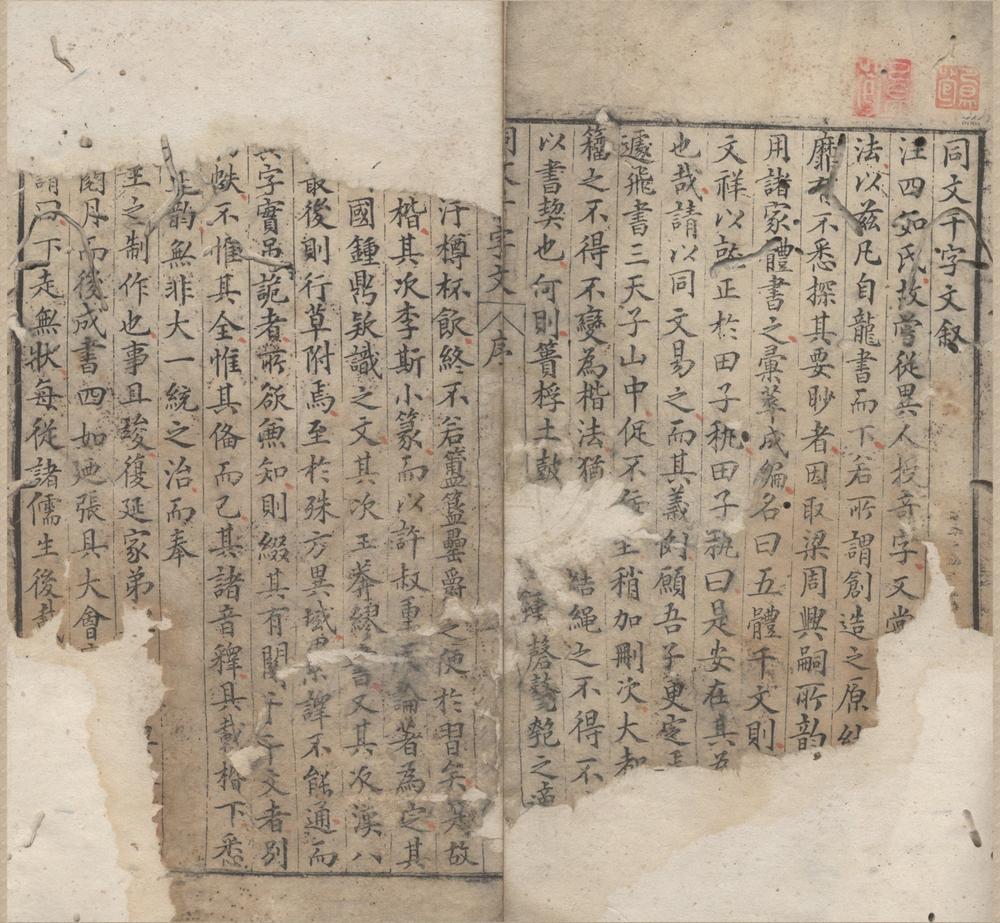 同文千字文叙
汪四如氏故嘗從異人授奇字又嘗
法以茲凡自龍書而下若所謂創造之原
靡不悉探其要眇者因取梁周興嗣所韵
用諸家體書之彙萃成編名曰五體千文則
文祥以就正於田子秇田子秇曰是安在其
也哉請以同文易之而其義則顧吾子更定
遽飛書三天子山中促不佞稍加刪次大都
籀之不得不變為楷法猶結繩之不得不
以書契也何則蕢桴土鼓磬之
同文千字文 序
汙樽杯飲終不若簠簋罍爵之便於習矣是故
楷其次李斯小篆而以許叔重論著為定其
國鍾鼎欵識之文其次王莽繆書又其次漢八
最後則行草附焉至於殊方異域譯不能通而
字實弔詭者所欲無知則綴其有關于千文者別
帙不惟其全惟其俻而已其諸音釋具載楷下悉
正韵無非大一統之治而奉
王之制作也事且竣復延家弟
閱月而後成書四如廼張具大會
謂曰下走無狀每從諸儒生後